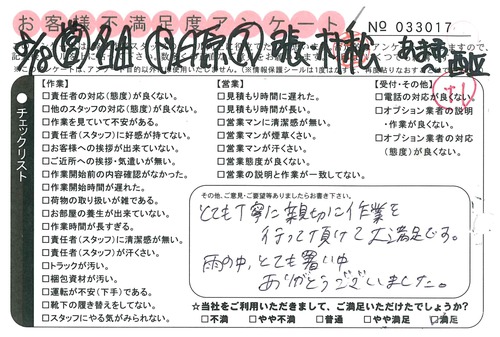 お客様不満足度アンケート
No 033017
あま市
西区
チェックリスト
【作業】
□責任者の対応（態度）が良くない。
□他のスタッフの対応（態度）が良くない。
□作業を見ていて不安がある。
□責任者（スタッフ）に好感が持てない。
□お客様への挨拶が出来ていない。
□ご近所への挨拶・気遣いが無い。
□作業開始前の内容確認がなかった。
□作業開始時間が遅れた。
□荷物の取り扱いが雑である。
□お部屋の養生が出来ていない。
□作業時間が長すぎる。
□責任者（スタッフ）に清潔感が無い。
□責任者（スタッフ）が汗くさい。
□トラックが汚い。
□梱包資材が汚い。
□運転が不安（下手）である。
□靴下の履き替えをしてない。
□スタッフにやる気がみられない。
【営業】
□見積もり時間に遅れた。
□見積もり時間が長い。
□営業マンに清潔感が無い。
□営業マンが煙草くさい。
□営業マンが汗くさい。
□営業態度が良くない。
□営業の説明と作業が一致してない。
【受付・その他】
□電話の対応が良くない。
□オプション業者の説明
・作業が良くない。
□オプション業者の対応
（態度）が良くない。
その他、ご意見・ご要望等ありましたらお書き下さい。
とても丁寧に親切に作業を
行って頂けて大満足です。
雨の中、とても暑い中
ありがとうございました。
☆当社をご利用いただきまして、ご満足いただけたでしょうか？
□不満 □やや不満 □普通 □やや満足 □満足